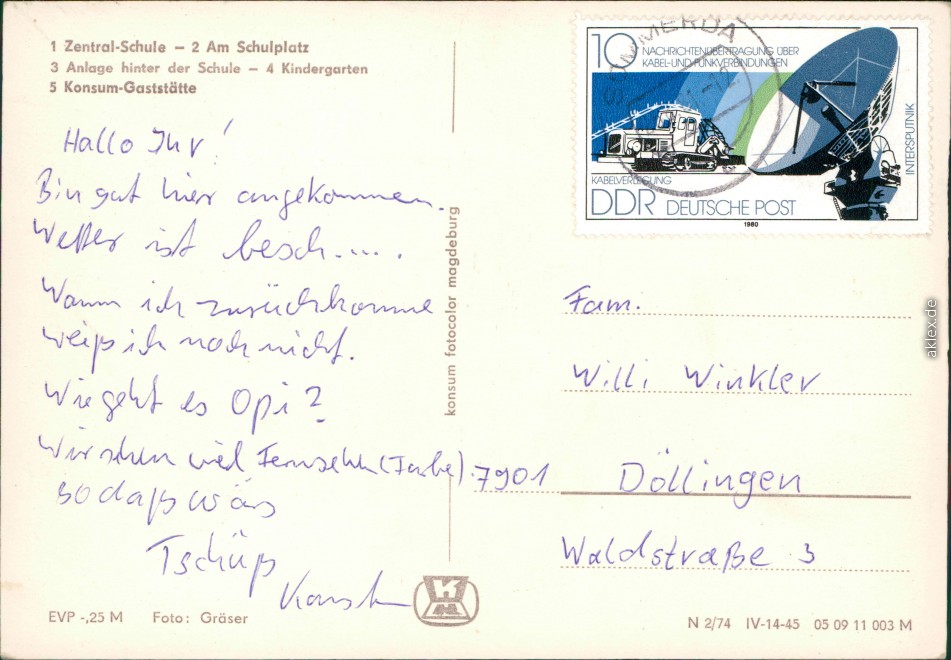 1 Zentral-Schule – 2 Am Schulplatz
3 Anlage hinter der Schule – 4 Kindergarten
5 Konsum-Gaststätte
Hallo Ihr!
Bin gut hier angekommen.
Wetter ist besch.....
Wann ich zurückkomme
weiß ich noch nicht.
Wie geht es Opi?
Wir sehen viel Fernsehn (Farbe).
so daß wärs
Tschüß
EVP -,25 M Foto: Gräser
konsum fotocolor magdeburg
SÖMMERDA
10 NACHRICHTENÜBERTRAGUNG ÜBER
KABEL-UND FUNKVERBINDUNGEN
INTERSPUTNIK
KABELVERLEGUNG
DDR DEUTSCHE POST
1980
Fam.
Willi Winkler
7901 Döllingen
Waldstraße 3
N 2/74 IV-14-45 05 09 11 003 M
aklex.de